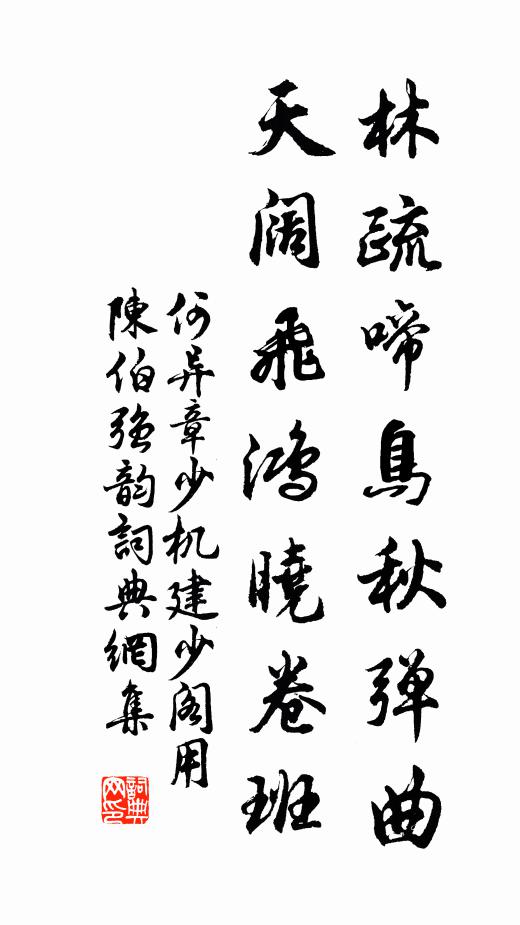 林疏啼鳥秋弹曲
天阔飛鴻曉卷班
何异章少机建少阁用
陳伯强韵詞典網集
詞典网印